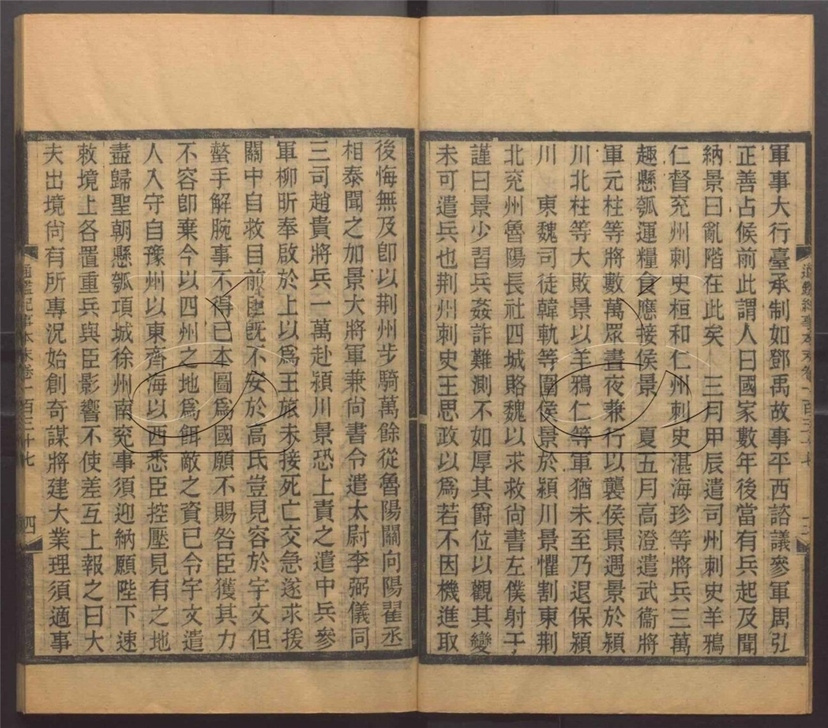 軍事大行臺承制如鄧禹故事平西諮議參軍周弘
正善占候前此謂人曰國家數年後當有兵起及聞
納景曰亂階在此矣　三月甲辰遣司州刺史羊鴉
仁督兗州刺史桓和仁州刺史湛海珍等將兵三萬
趣懸瓠運糧食應接侯景　夏五月高澄遣武衞將
軍元柱等將數萬眾晝夜兼行以襲侯景遇景於潁
川北柱等大敗景以羊鴉仁等軍猶未至乃退保潁
川　東魏司徒韓軌等圍侯景於潁川景懼割東荆
北兗州魯陽長社四城賂魏以求救尙書左僕射于
謹曰景少習兵姦詐難測不如厚其爵位以觀其變
未可遣兵也荆州刺史王思政以爲若不因機進取
後悔無及卽以荆州步騎萬餘從魯陽關向陽翟丞
相泰聞之加景大將軍兼尙書令遣太尉李弼儀同
三司趙貴將兵一萬赴潁川景恐上責之遣中兵參
軍柳昕奉啟於上以爲王旅未接死亡交急遂求援
關中自救目前臣旣不安於高氏豈見容於宇文但
螫手解腕事不得已本圖爲國願不賜咎臣獲其力
不容卽棄今以四州之地爲餌敵之資已令宇文遣
人入守自豫州以東齊海以西悉臣控壓見有之地
盡歸聖朝懸瓠項城徐州南兗事須迎納願陛下速
敕境上各置重兵與臣影響不使差互上報之曰大
夫出境尙有所專況始創奇謀將建大業理須適事
通鑑紀事本末卷一百三十七
四